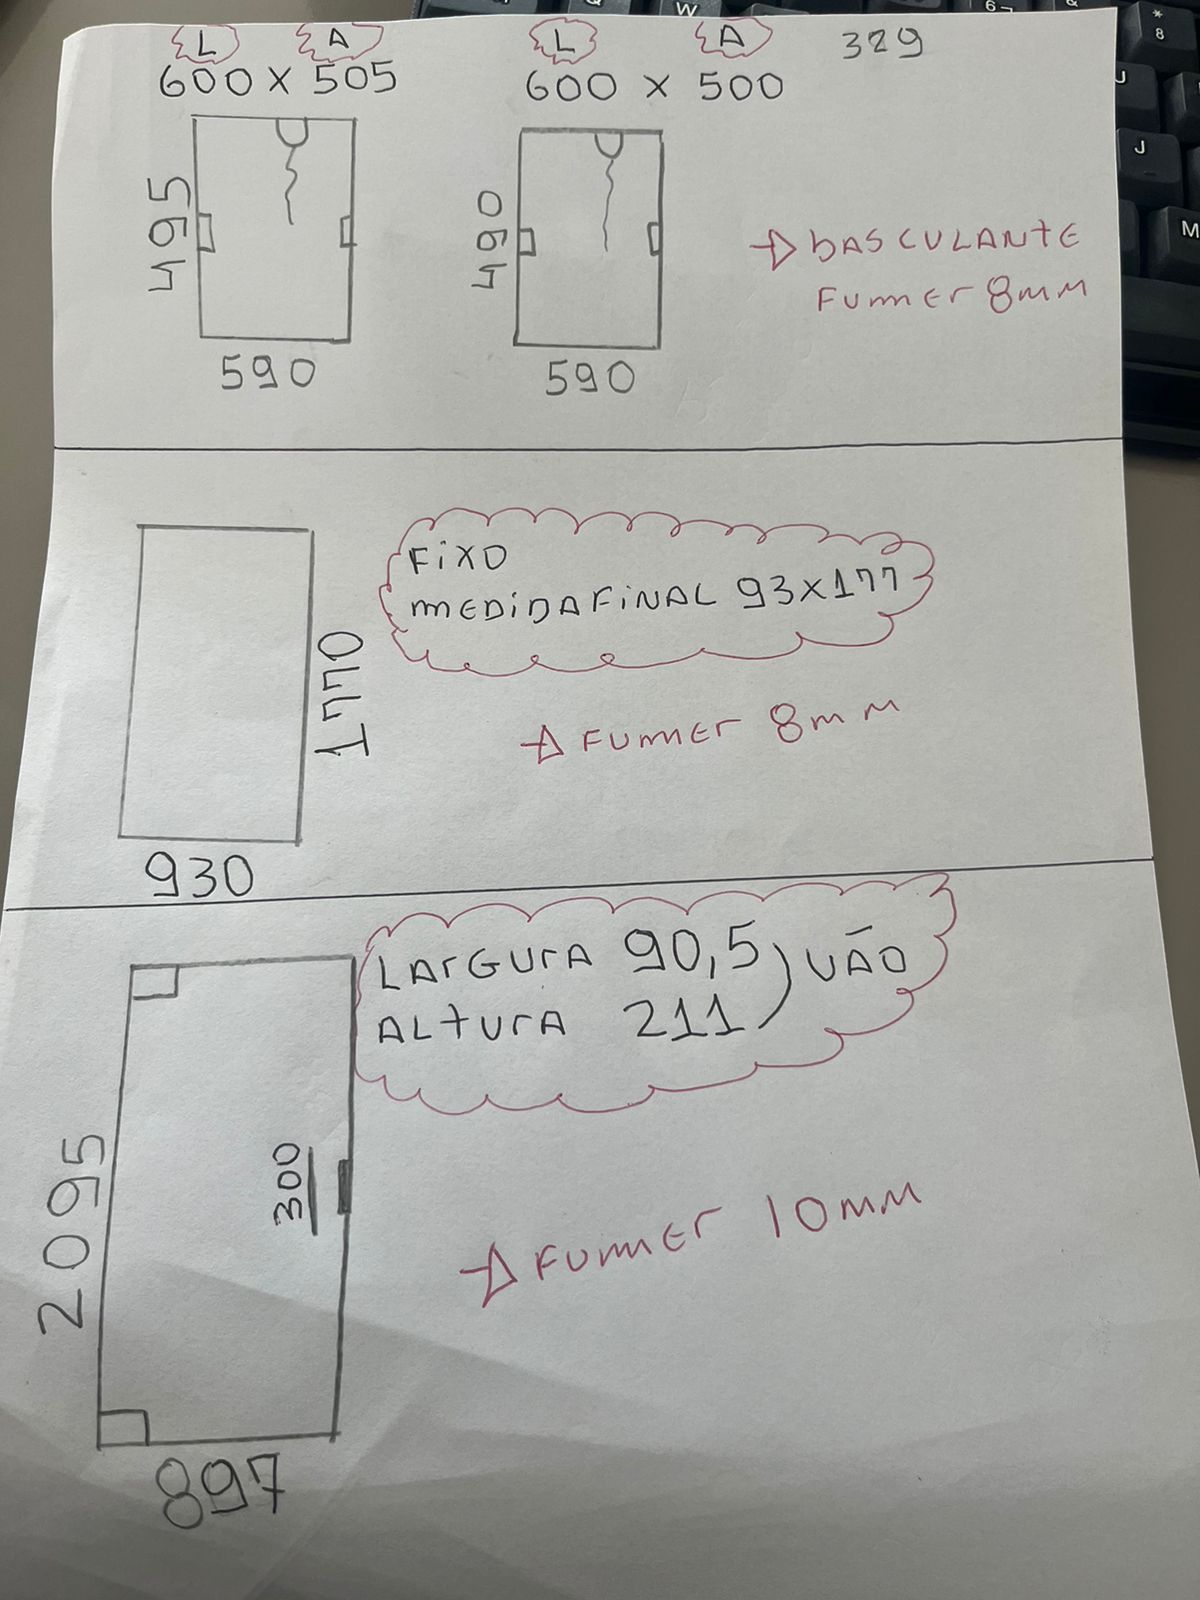 L A L A 329
600 x 505 600 x 500
495 490
→ bASCULANTE
FUMMEr 8mm
590 590
FiXO
mEDiDA FiNAL 93x177
1770
→ FUMMEr 8mm
930
LArGUrA 90,5 ) VÃO
ALtUrA 211
300
2095
→ FUMMEr 10mm
897